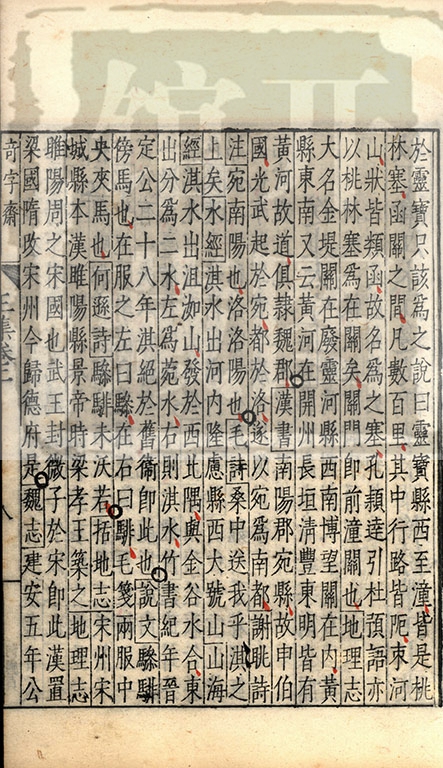 於靈寶只該為之說曰靈寶縣西至潼皆是桃
林塞函關之間凡數百里其中行路皆阨束河
山狀皆類函故名為之塞孔頴達引杜預語亦
以桃林塞為在關矣關門即前潼關也地理志
大名金堤關在廢靈河縣西南博望關在內黃
縣東南又云黃河在開州長垣清豐東明皆有
黃河故道俱隸魏郡漢書南陽郡宛縣故申伯
國光武起於宛都於洛遂以宛為南都謝眺詩
注宛南陽也洛洛陽也毛詩桑中送我乎淇之
上矣水經淇水出河內隆慮縣西大號山山海
經淇水出沮洳山發於西北隅與金谷水合東
出分為二水左為菀水右則淇水竹書紀年晉
定公二十八年淇絕於舊衛即此也說文驂騑
傍馬也在服之左曰驂在右曰騑毛箋兩服中
央夾馬也何遜詩驂騑未沃若括地志宋州宋
城縣本漢睢陽縣景帝時梁孝王築之地理志
睢陽周之宋國也武王封微子於宋即此漢置
梁國隋改宋州今歸德府是魏志建安五年公
奇字齋
八